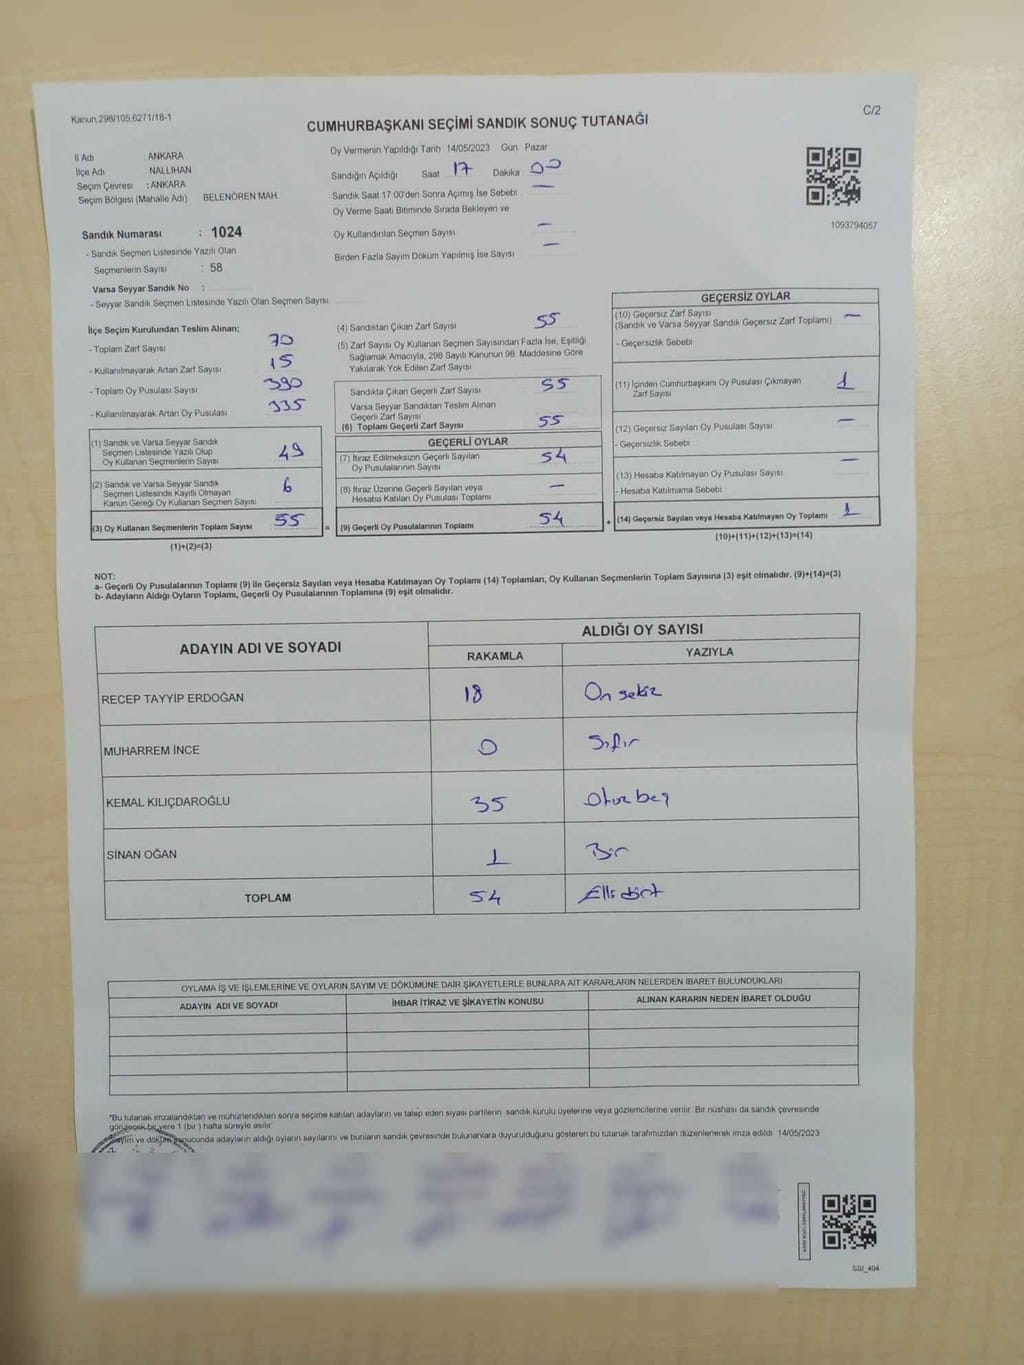 Kanun,298/105,6271/18-1
C/2
CUMHURBAŞKANI SEÇİMİ SANDIK SONUÇ TUTANAĞI
İl Adı : ANKARA
İlçe Adı NALLIHAN
Seçim Çevresi : ANKARA
Seçim Bölgesi (Mahalle Adı) BELENÖREN MAH.
Oy Vermenin Yapıldığı Tarih 14/05/2023 Gün Pazar
Sandığın Açıldığı Saat 17 Dakika 00
Sandık Saat 17:00'den Sonra Açımış İse Sebebi —
Oy Verme Saati Bitiminde Sırada Bekleyen ve
Oy Kullandırılan Seçmen Sayısı —
Birden Fazla Sayım Döküm Yapılmış İse Sayısı —
1093794057
Sandık Numarası : 1024
- Sandık Seçmen Listesinde Yazılı Olan
Seçmenlerin Sayısı : 58
Varsa Seyyar Sandık No :
- Seyyar Sandık Seçmen Listesinde Yazılı Olan Seçmen Sayısı
İlçe Seçim Kurulundan Teslim Alınan;
- Toplam Zarf Sayısı 70
- Kullanılmayarak Artan Zarf Sayısı 15
- Toplam Oy Pusulası Sayısı 390
- Kullanılmayarak Artan Oy Pusulası 335
(1) Sandık ve Varsa Seyyar Sandık
Seçmen Listesinde Yazılı Olup
Oy Kullanan Seçmenlerin Sayısı 49
(2) Sandık ve Varsa Seyyar Sandık
Seçmen Listesinde Kayıtlı Olmayan
Kanun Gereği Oy Kullanan Seçmen Sayısı 6
(3) Oy Kullanan Seçmenlerin Toplam Sayısı 55 =
(1)+(2)=(3)
(4) Sandıktan Çıkan Zarf Sayısı 55
(5) Zarf Sayısı Oy Kullanan Seçmen Sayısından Fazla İse, Eşitliği
Sağlamak Amacıyla, 298 Sayılı Kanunun 98. Maddesine Göre
Yakılarak Yok Edilen Zarf Sayısı
Sandıkta Çıkan Geçerli Zarf Sayısı 55
Varsa Seyyar Sandıktan Teslim Alınan
Geçerli Zarf Sayısı
(6) Toplam Geçerli Zarf Sayısı 55
GEÇERLİ OYLAR
(7) İtiraz Edilmeksizin Geçerli Sayılan
Oy Pusulalarının Sayısı 54
(8) İtiraz Üzerine Geçerli Sayılan veya
Hesaba Katılan Oy Pusulası Toplamı —
(9) Geçerli Oy Pusulalarının Toplamı 54 +
GEÇERSİZ OYLAR
(10) Geçersiz Zarf Sayısı —
(Sandık ve Varsa Seyyar Sandık Geçersiz Zarf Toplamı)
- Geçersizlik Sebebi
(11) İçinden Cumhurbaşkanı Oy Pusulası Çıkmayan
Zarf Sayısı 1
(12) Geçersiz Sayılan Oy Pusulası Sayısı —
- Geçersizlik Sebebi
(13) Hesaba Katılmayan Oy Pusulası Sayısı —
- Hesaba Katılmama Sebebi
(14) Geçersiz Sayılan veya Hesaba Katılmayan Oy Toplamı 1
(10)+(11)+(12)+(13)=(14)
NOT:
a- Geçerli Oy Pusulalarının Toplamı (9) ile Geçersiz Sayılan veya Hesaba Katılmayan Oy Toplamı (14) Toplamları, Oy Kullanan Seçmenlerin Toplam Sayısına (3) eşit olmalıdır. (9)+(14)=(3)
b- Adayların Aldığı Oyların Toplamı, Geçerli Oy Pusulalarının Toplamına (9) eşit olmalıdır.
ADAYIN ADI VE SOYADI
ALDIĞI OY SAYISI
RAKAMLA YAZIYLA
RECEP TAYYİP ERDOĞAN 18 On sekiz
MUHARREM İNCE 0 Sıfır
KEMAL KILIÇDAROĞLU 35 Otuz beş
SİNAN OĞAN 1 Bir
TOPLAM 54 Elli dört
OYLAMA İŞ VE İŞLEMLERİNE VE OYLARIN SAYIM VE DÖKÜMÜNE DAİR ŞİKAYETLERLE BUNLARA AİT KARARLARIN NELERDEN İBARET BULUNDUKLARI
ADAYIN ADI VE SOYADI İHBAR İTİRAZ VE ŞİKAYETİN KONUSU ALINAN KARARIN NEDEN İBARET OLDUĞU
*Bu tutanak imzalandıktan ve mühürlendikten sonra seçime katılan adayların ve talep eden siyasi partilerin sandık kurulu üyelerine veya gözlemcilerine verilir. Bir nushası da sandık çevresinde
görülecek bir yere 1 (bir) hafta süreyle asılır.
Sayım ve döküm sonucunda adayların aldığı oyların sayılarını ve bunların sandık çevresinde bulunanlara duyurulduğunu gösteren bu tutanak tarafımızdan düzenlenerek imza edildi. 14/05/2023
SSI_404